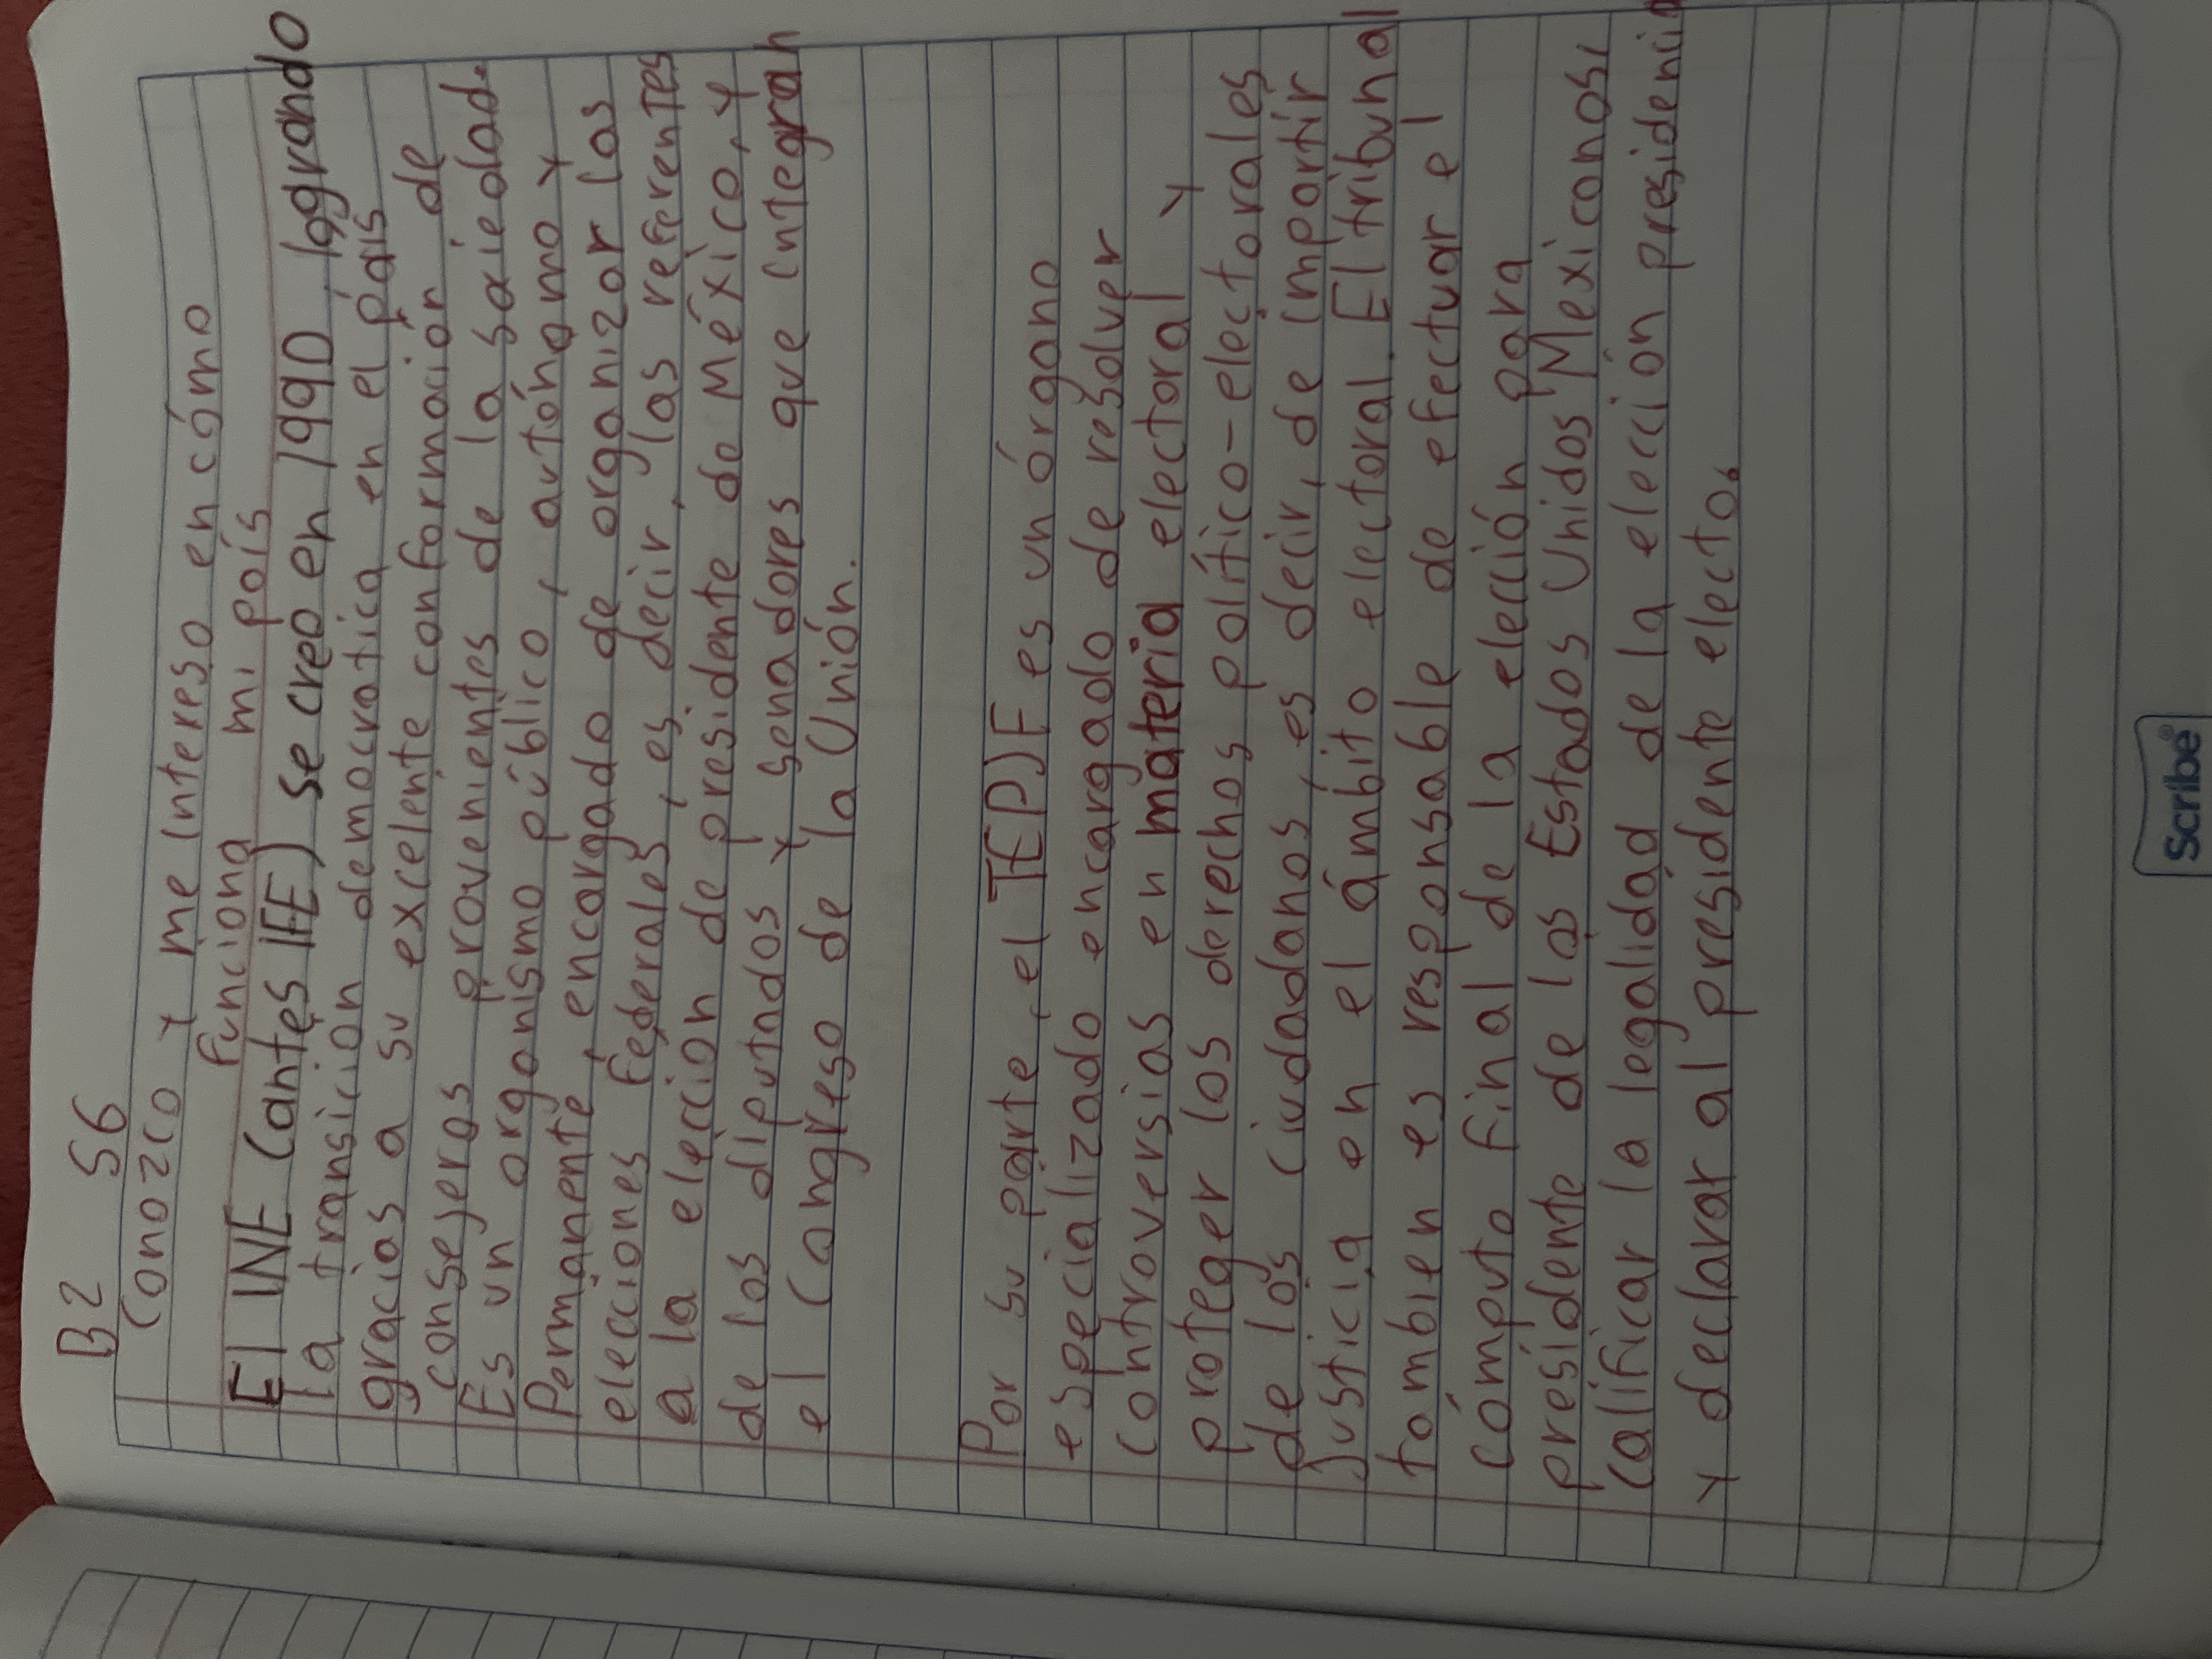 B2 S6
Conozco y me intereso en cómo
funciona mi país
El INE (antes IFE) se creo en 1990, logrando
la transición democratica en el país
gracias a su excelente conformación de
consejeros provenientes de la sociedad.
Es un organismo público, autónomo y
Permanente, encargado de organizar las
elecciones federales, es decir, las referentes
a la elección de presidente de México, y
de los diputados y senadores que integran
el Congreso de la Unión.
Por su parte, el TEPJF es un órgano
especializado encargado de resolver
controversias en materia electoral y
proteger los derechos político-electorales
de los ciudadanos, es decir, de impartir
justicia en el ámbito electoral. El tribunal
tambien es responsable de efectuar el
cómputo final de la elección para
presidente de los Estados Unidos Mexicanos,
calificar la legalidad de la elección presidencia
y declarar al presidente electo.
Scribe®